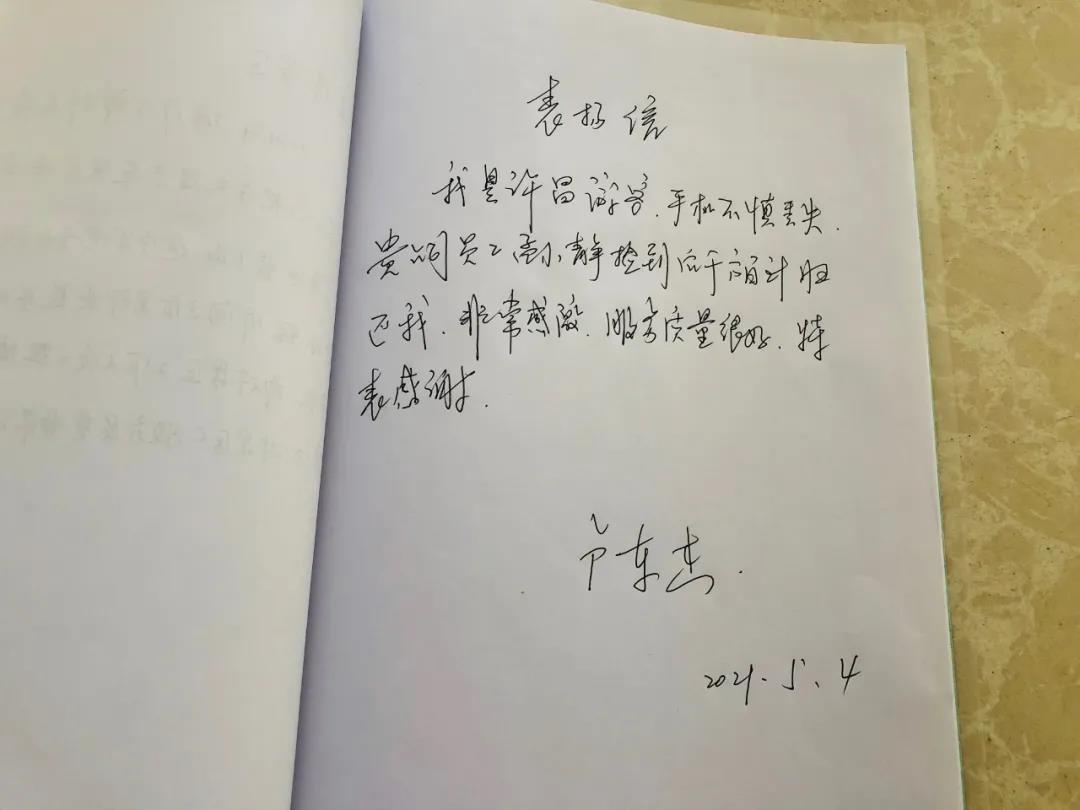 表扬信
我是许昌游客.手机不慎丢失.
贵公司员工孟小静捡到后千方百计归
还我.非常感激.服务质量很好.特
表感谢.
卢东杰.
2021.5.4